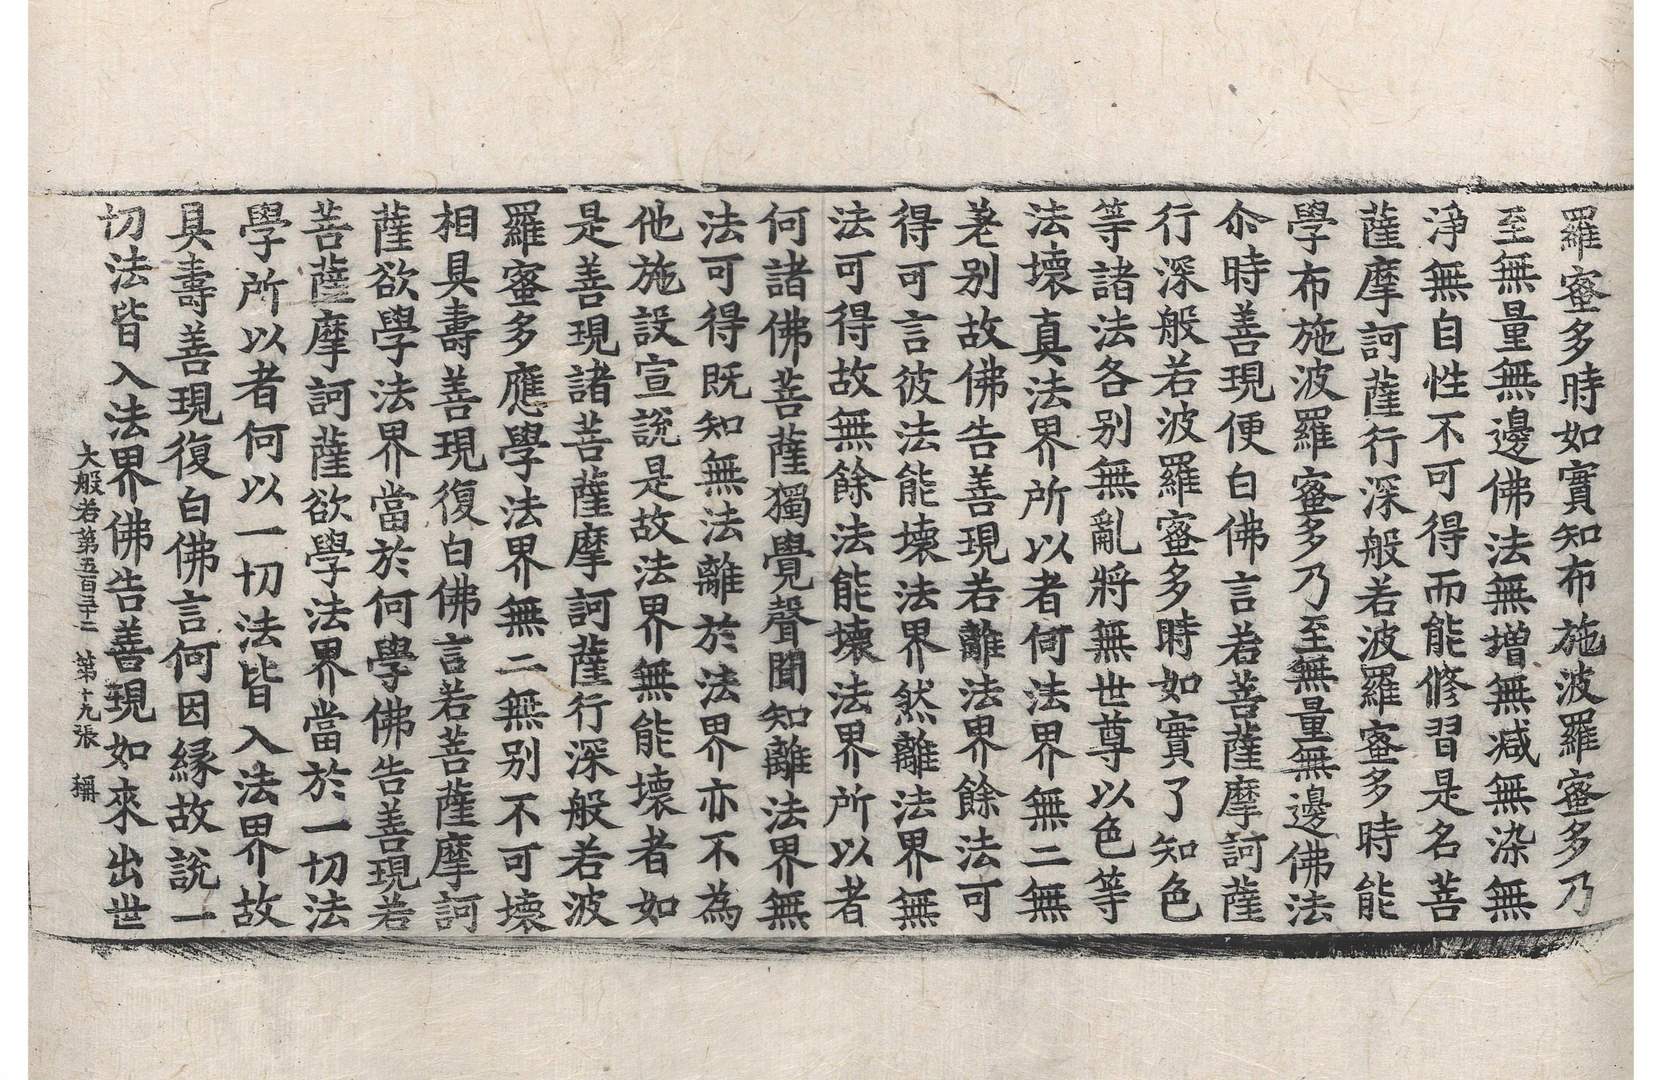 羅蜜多時如實知布施波羅蜜多乃
至無量無邊佛法無增無減無染無
淨無自性不可得而能修習是名菩
薩摩訶薩行深般若波羅蜜多時能
學布施波羅蜜多乃至無量無邊佛法
尒時善現便白佛言若菩薩摩訶薩
行深般若波羅蜜多時如實了知色
等諸法各别無亂將無世尊以色等
法壞真法界所以者何法界無二無
差别故佛告善現若離法界餘法可
得可言彼法能壞法界然離法界無
法可得故無餘法能壞法界所以者
何諸佛菩薩獨覺聲聞知離法界無
法可得既知無法離於法界亦不為
他施設宣說是故法界無能壞者如
是善現諸菩薩摩訶薩行深般若波
羅蜜多應學法界無二無别不可壞
相具壽善現復白佛言若菩薩摩訶
薩欲學法界當於何學佛告善現若
菩薩摩訶薩欲學法界當於一切法
學所以者何以一切法皆入法界故
具壽善現復白佛言何因緣故說一
切法皆入法界佛告善現如來出世
大般若第五百三十二 第十九張 稱